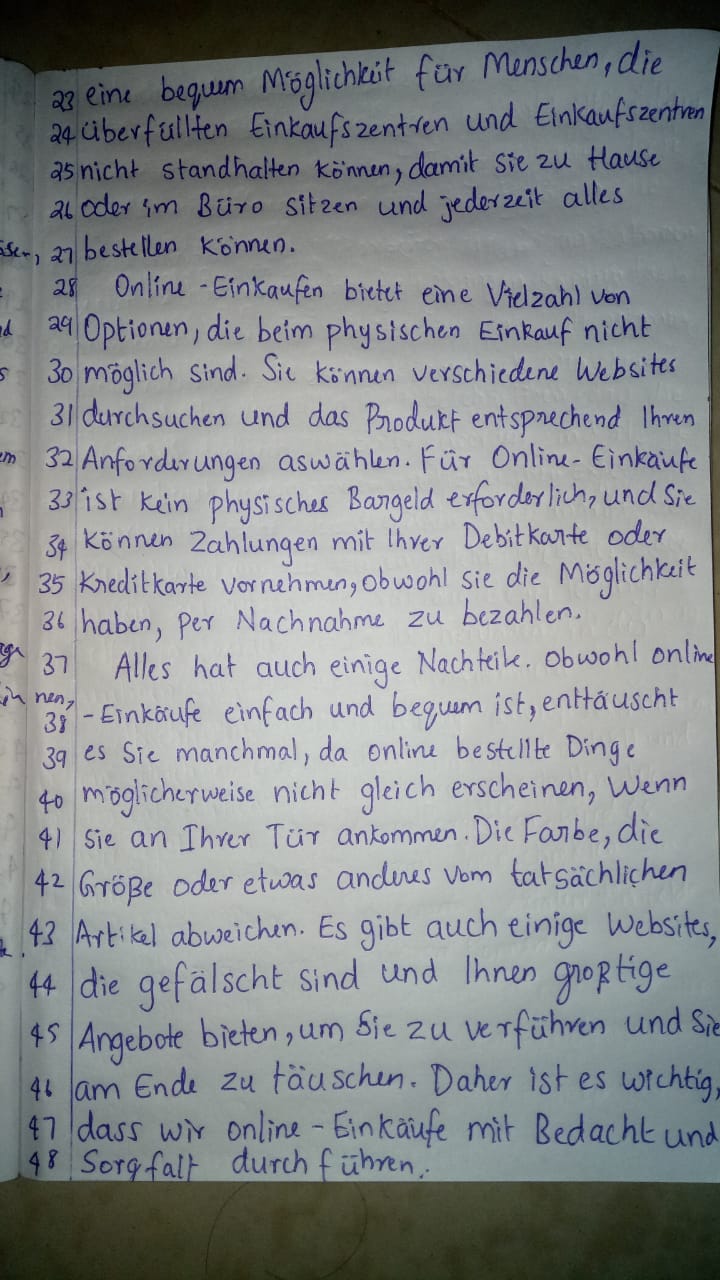 23 eine bequem Möglichkeit für Menschen, die
24 überfüllten Einkaufszentren und Einkaufszentren
25 nicht standhalten können, damit sie zu Hause
26 oder im Büro sitzen und jederzeit alles
27 bestellen können.
28 Online - Einkaufen bietet eine Vielzahl von
29 Optionen, die beim physischen Einkauf nicht
30 möglich sind. Sie können verschiedene Websites
31 durchsuchen und das Produkt entsprechend Ihren
32 Anforderungen aswählen. Für Online- Einkäufe
33 ist kein physisches Bargeld erforderlich, und Sie
34 können Zahlungen mit Ihrer Debitkarte oder
35 Kreditkarte vornehmen, obwohl sie die Möglichkeit
36 haben, per Nachnahme zu bezahlen.
37 Alles hat auch einige Nachteile. Obwohl online
38 - Einkäufe einfach und bequem ist, enttäuscht
39 es Sie manchmal, da online bestellte Dinge
40 möglicherweise nicht gleich erscheinen, Wenn
41 sie an Ihrer Tür ankommen. Die Farbe, die
42 Größe oder etwas anderes vom tatsächlichen
43 Artikel abweichen. Es gibt auch einige Websites,
44 die gefälscht sind und Ihnen großtige
45 Angebote bieten, um Sie zu verführen und Sie
46 am Ende zu täuschen. Daher ist es wichtig,
47 dass wir online - Einkäufe mit Bedacht und
48 Sorgfalt durchführen.